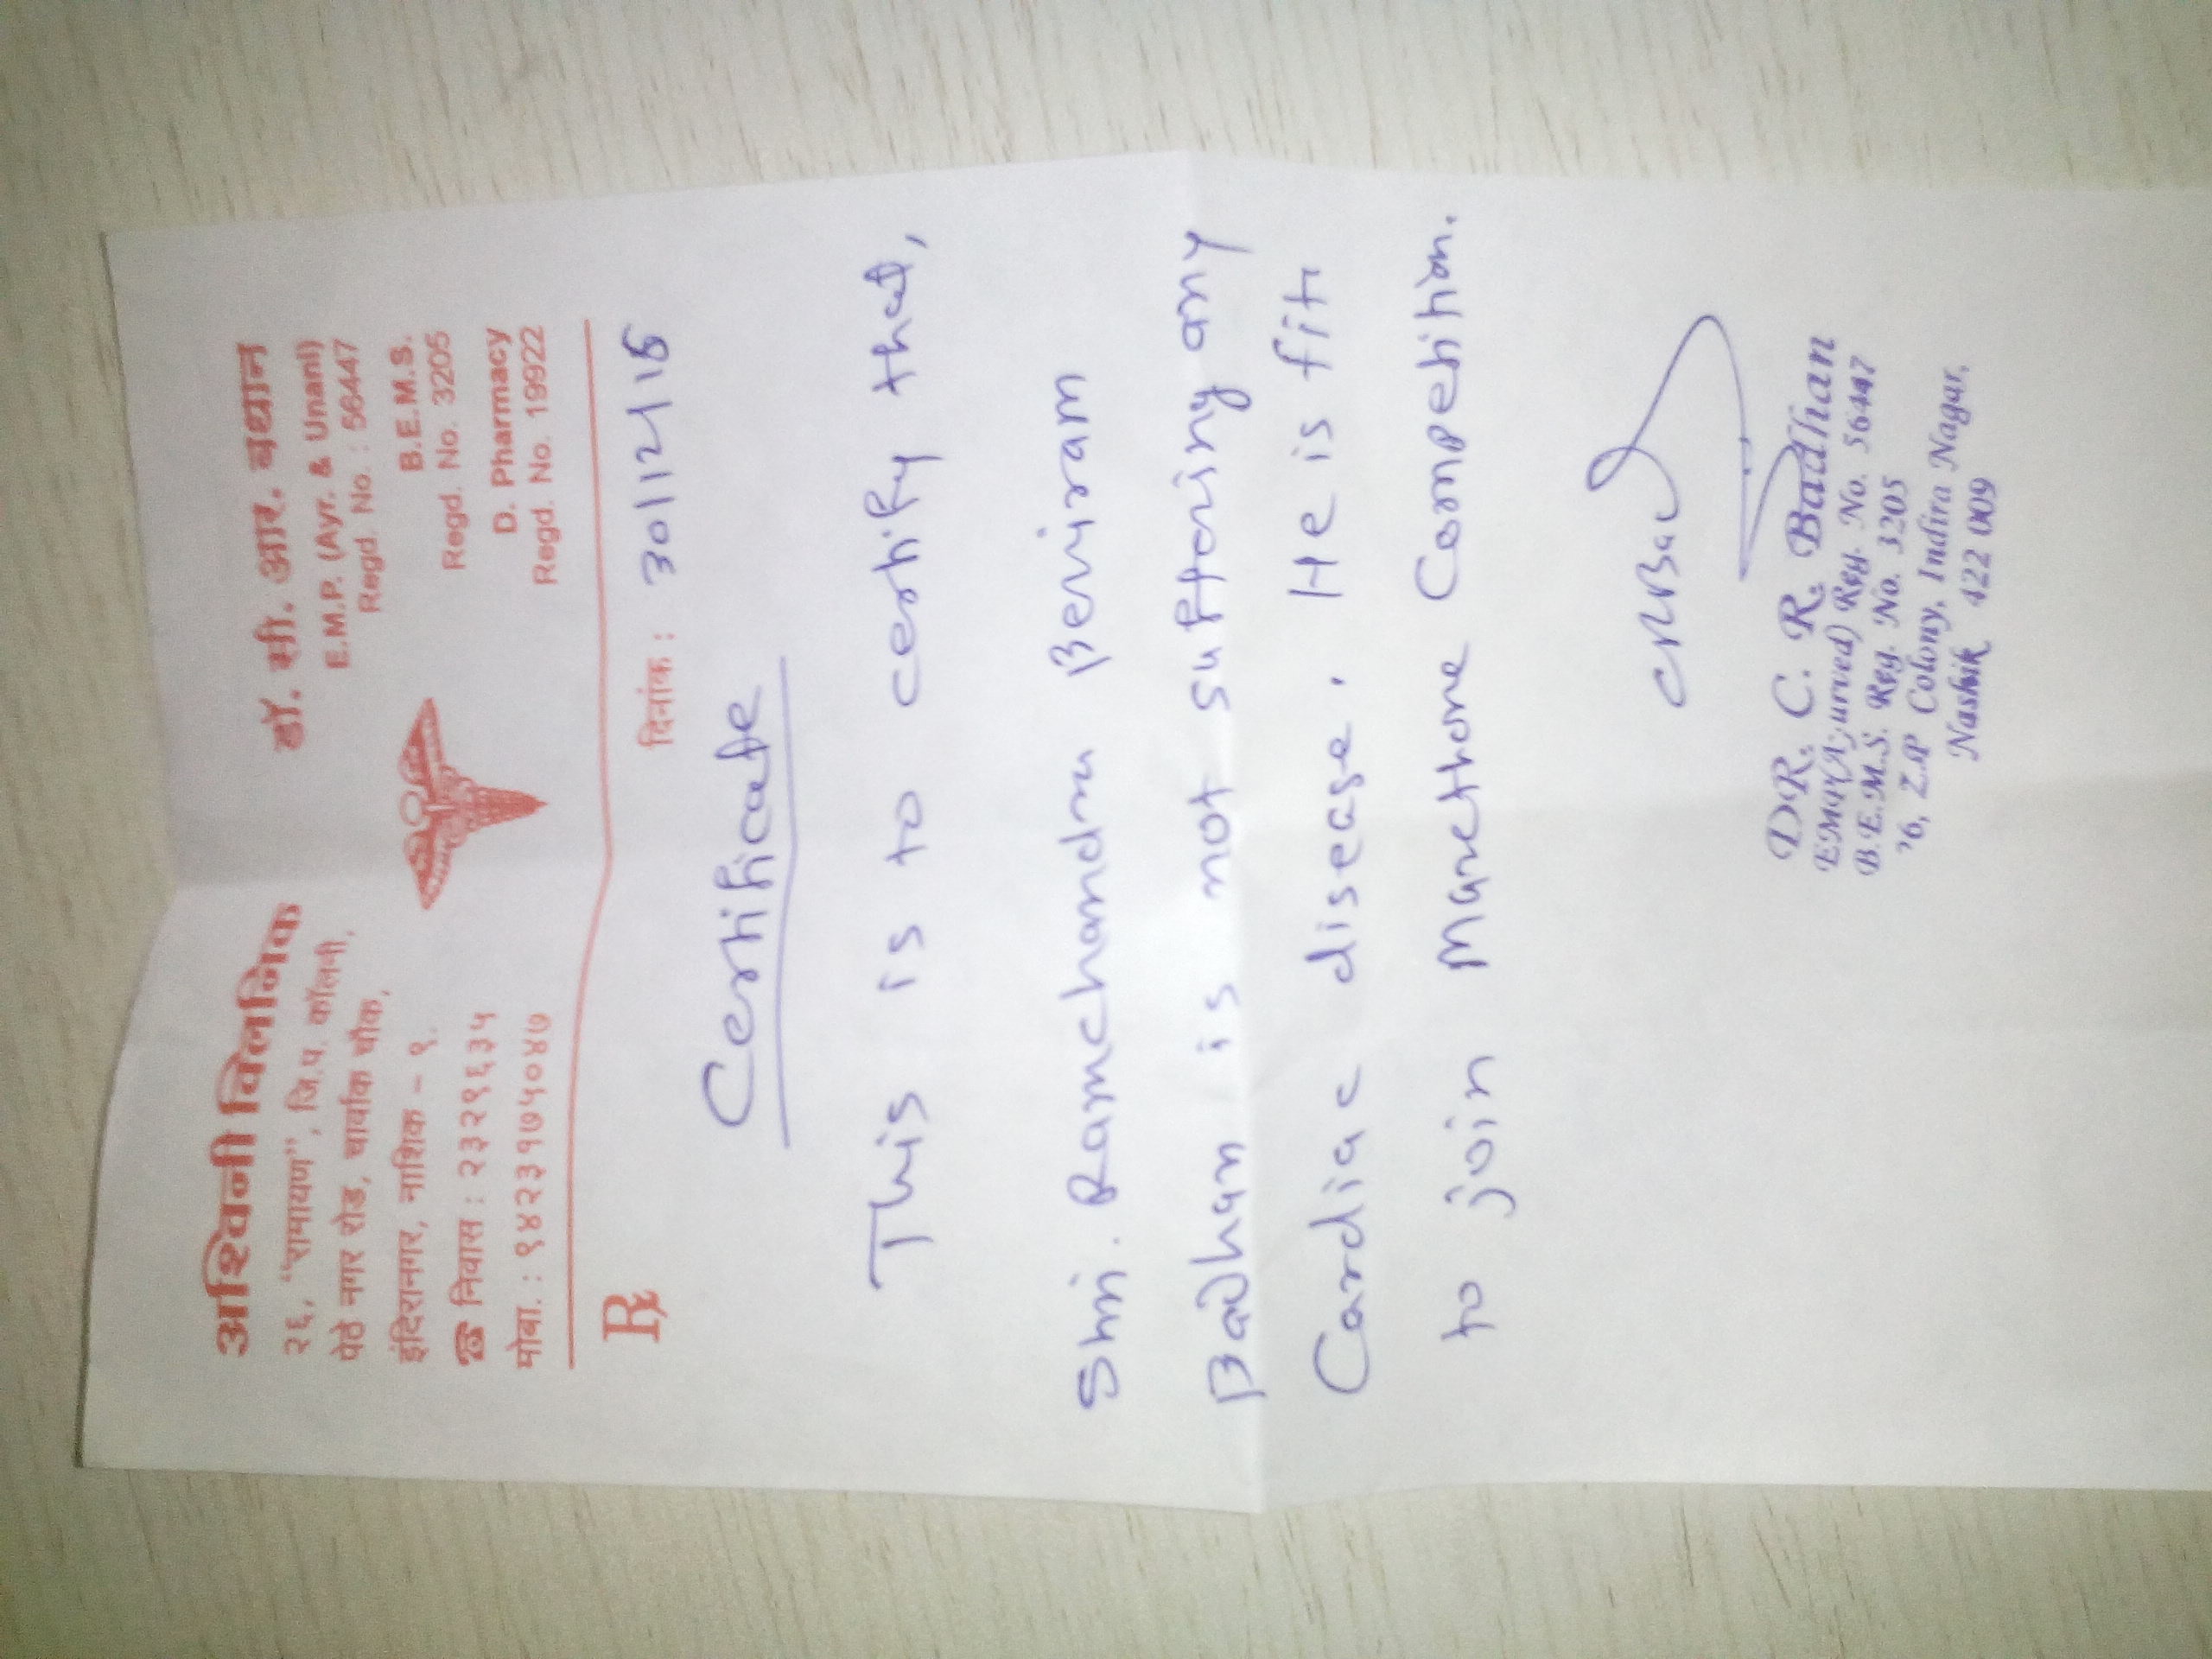 अश्विनी क्लिनिक
२६, "रामायण", जि.प. कॉलनी,
पेठे नगर रोड, चार्वाक चौक,
इंदिरानगर, नाशिक - ९.
☎ निवास : २३२९६३५
मोबा. : ९४२३१७५०४७
डॉ. सी. आर. बधान
E.M.P. (Ayr. & Unani)
Regd. No. : 56447
B.E.M.S.
Regd. No. 3205
D. Pharmacy
Regd. No. 19922
℞
दिनांक : 30/12/15
Certificate
This is to certify that,
Shri. Ramchandra Beniram
Badhan is not suffering any
Cardiac disease. He is fit
to join Marethone Competition.
CRBad
DR. C. R. Badhan
EMP(Ayurved) Reg. No. 56447
B.E.M.S. Reg. No. 3205
26, Z.P Colony, Indira Nagar,
Nashik 422 009